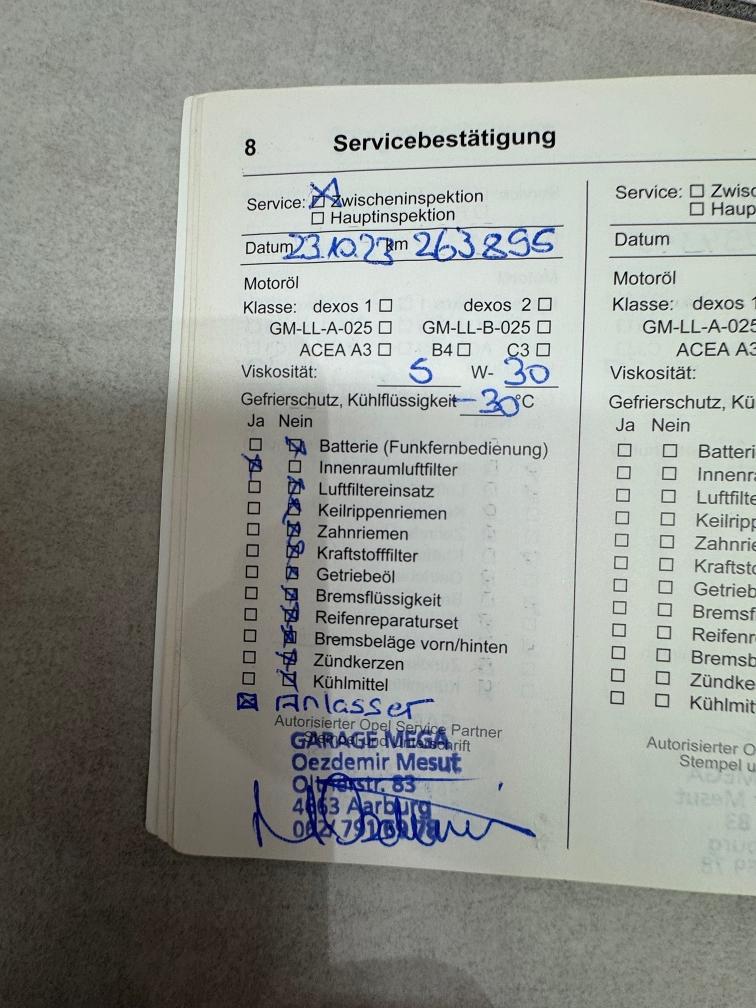 8 Servicebestätigung
Service: ☒ Zwischeninspektion
☐ Hauptinspektion
Datum 23.10.23 km 263.895
Motoröl
Klasse: dexos 1 ☐ dexos 2 ☐
GM-LL-A-025 ☐ GM-LL-B-025 ☐
ACEA A3 ☐ B4 ☐ C3 ☐
Viskosität: 5 W- 30
Gefrierschutz, Kühlflüssigkeit -30 °C
Ja Nein
☐ ☒ Batterie (Funkfernbedienung)
☒ ☐ Innenraumluftfilter
☐ ☒ Luftfiltereinsatz
☐ ☒ Keilrippenriemen
☐ ☒ Zahnriemen
☐ ☒ Kraftstofffilter
☐ ☒ Getriebeöl
☐ ☒ Bremsflüssigkeit
☐ ☒ Reifenreparaturset
☐ ☒ Bremsbeläge vorn/hinten
☐ ☒ Zündkerzen
☐ ☒ Kühlmittel
☒ Anlasser
Autorisierter Opel Service Partner
Stempel und Unterschrift
GARAGE MEGA
Oezdemir Mesut
Oltnerstr. 83
4663 Aarburg
062 791
Service: ☐ Zwisc
☐ Haup
Datum
Motoröl
Klasse: dexos 1
GM-LL-A-025
ACEA A3
Viskosität:
Gefrierschutz, Kü
Ja Nein
☐ ☐ Batteri
☐ ☐ Innenra
☐ ☐ Luftfilte
☐ ☐ Keilripp
☐ ☐ Zahnrie
☐ ☐ Kraftsto
☐ ☐ Getrieb
☐ ☐ Bremsf
☐ ☐ Reifenr
☐ ☐ Bremsb
☐ ☐ Zündke
☐ ☐ Kühlmit
Autorisierter O
Stempel u